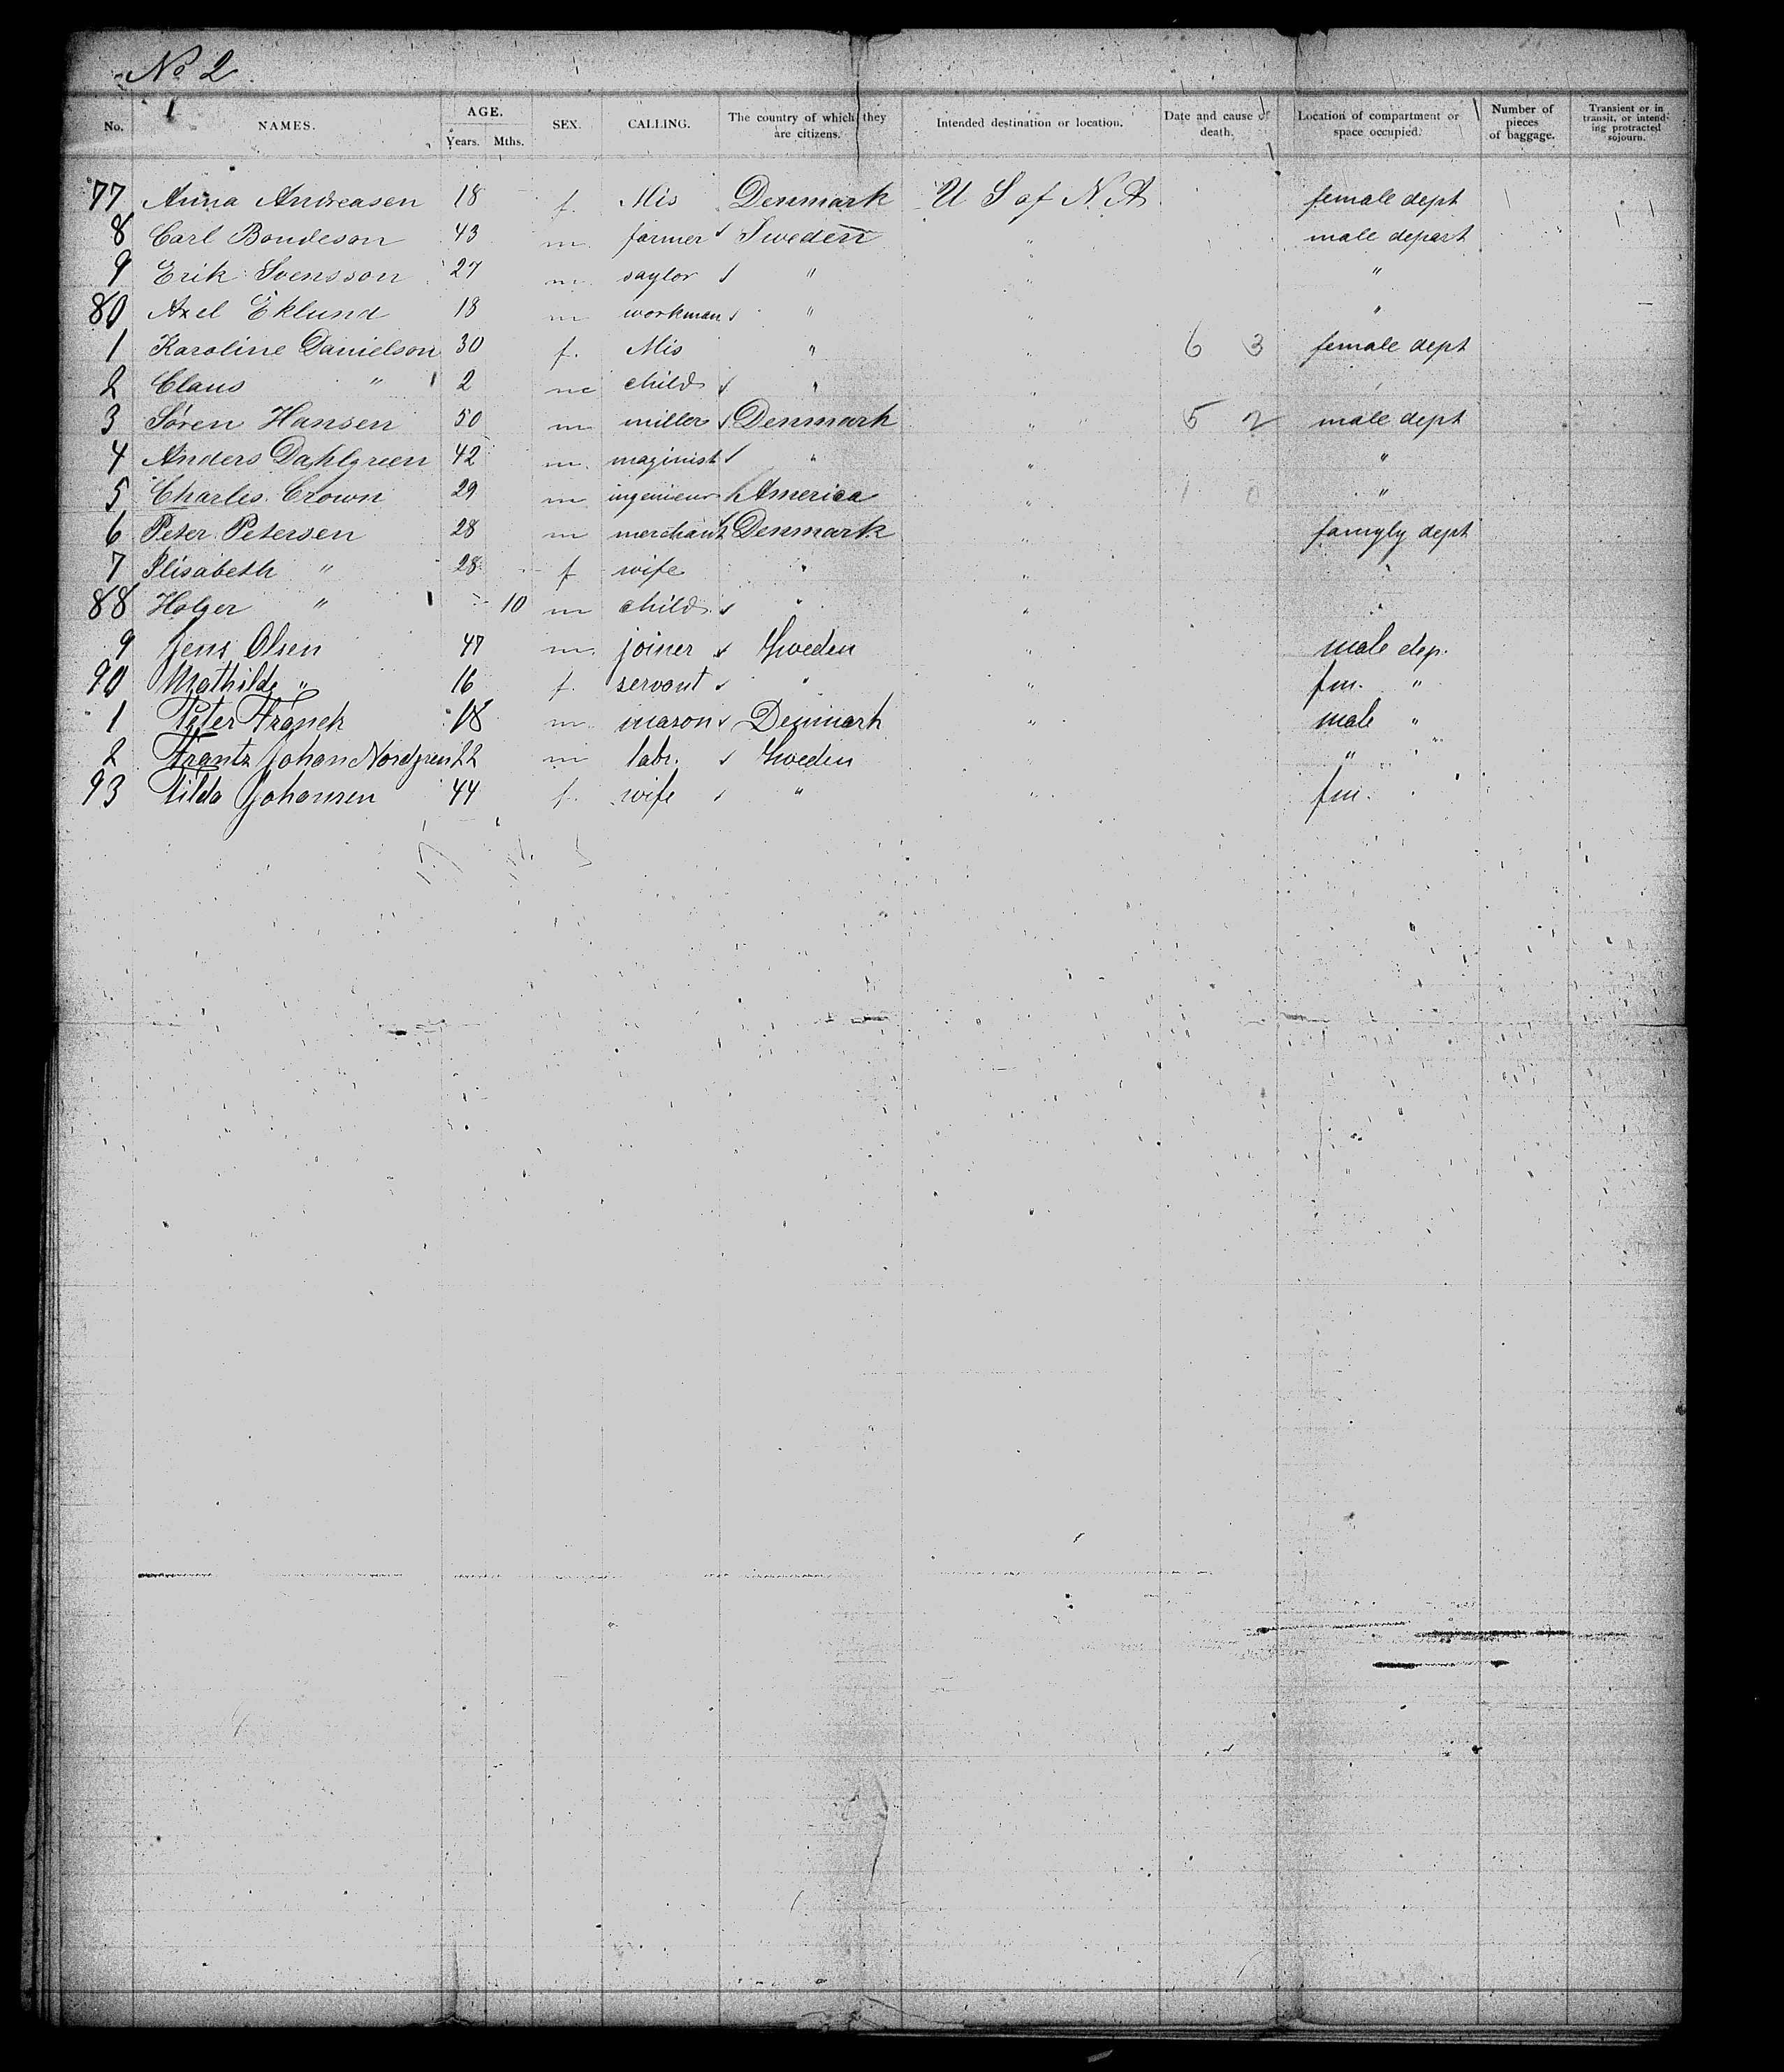 No 2
No. NAMES. AGE. Years. Mths. SEX. CALLING. The country of which they are citizens. Intended destination or location. Date and cause of death. Location of compartment or space occupied. Number of pieces of baggage. Transient or in transit, or intending protracted sojourn.
77 Anna Andreasen 18 f. Mis Denmark U S of N A female dept
8 Carl Bondeson 43 m farmer Sweden " male depart
9 Erik Svensson 27 m saylor " " "
80 Axel Eklund 18 m workman " " "
1 Karoline Danielson 30 f. Mis " " 6 3 female dept
2 Claus " 2 m child " "
3 Søren Hansen 50 m miller Denmark " 5 2 male dept
4 Anders Dahlgreen 42 m. maginist " " "
5 Charles Crown 29 m ingenieur America " "
6 Peter Petersen 28 m merchant Denmark famyly dept
7 Elisabeth " 28 f wife " " "
88 Holger " 10 m child " " "
9 Jens Olsen 47 m. joiner Sweden " male dep.
90 Mathilde " 16 f. servant " " fm. "
1 Peter Franck 18 m mason Denmark " male "
2 Frantz Johan Nordgren 22 m labr. Sweden " "
93 Tilda Johansen 44 f. wife " " fm. "